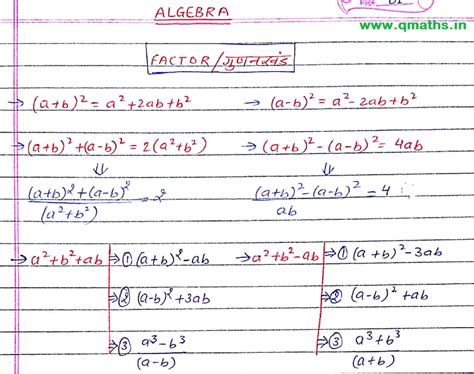 ALGEBRA
www.qmaths.in
FACTOR/गुणनखंड
→ (a+b)² = a²+2ab+b² → (a-b)² = a²-2ab+b²
→ (a+b)²+(a-b)² = 2(a²+b²) → (a+b)²-(a-b)² = 4ab
⇓ ⇓
(a+b)²+(a-b)² / (a²+b²) = 2 (a+b)²-(a-b)² / ab = 4
→ a²+b²+ab ⇒ ① (a+b)²-ab → a²+b²-ab ⇒ ① (a+b)²-3ab
⇒ ② (a-b)²+3ab ⇒ ② (a-b)²+ab
⇒ ③ a³-b³ / (a-b) ⇒ ③ a³+b³ / (a+b)